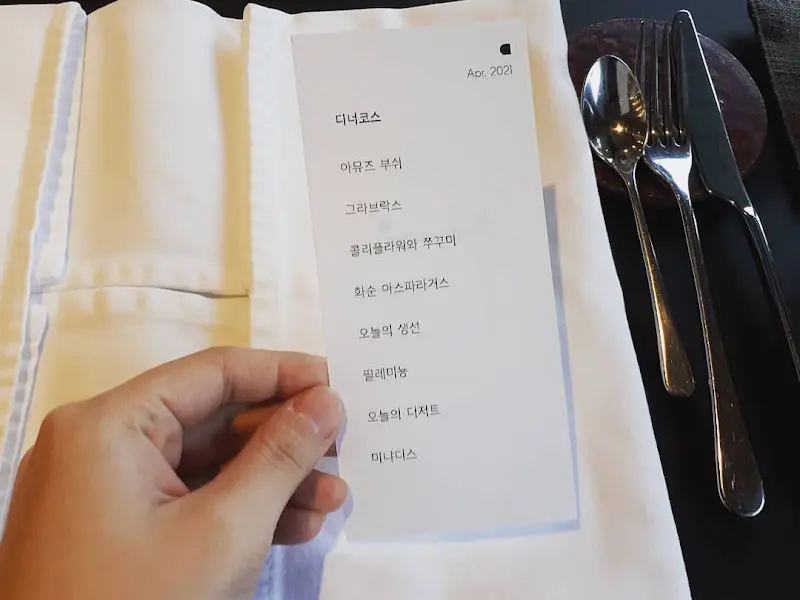 Apr. 2021
디너코스
아뮤즈 부쉬
그라브락스
콜리플라워와 쭈꾸미
화순 아스파라거스
오늘의 생선
필레미뇽
오늘의 디저트
미냐디스